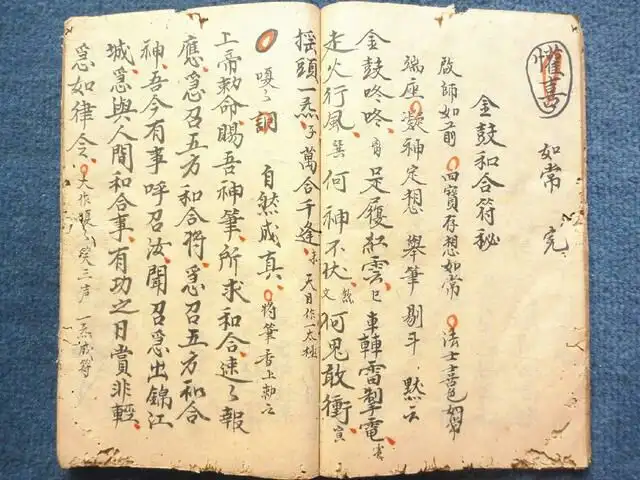 懽喜
如常 完
金鼓和合符秘
啟師如前 四寶存想如常 法士喜色如常
端座凝神定想 舉筆剔斗 默云
金鼓咚咚 足履紅雲 車轉雷掣電
走火行風 巽 何神不伏 何鬼敢衝 寅
搖頭一炁 子 萬合千逢 天目作一太極
嗄 自然成真 將筆香上勅云
上帝勅命 賜吾神筆 所求和合 速々報
應 急召五方和合將 急召五方和合
神 吾今有事呼召汝 聞召急出錦江
城 急與人間和合事 有功之日賞非輕
急如律令 大作 三声 一炁成符